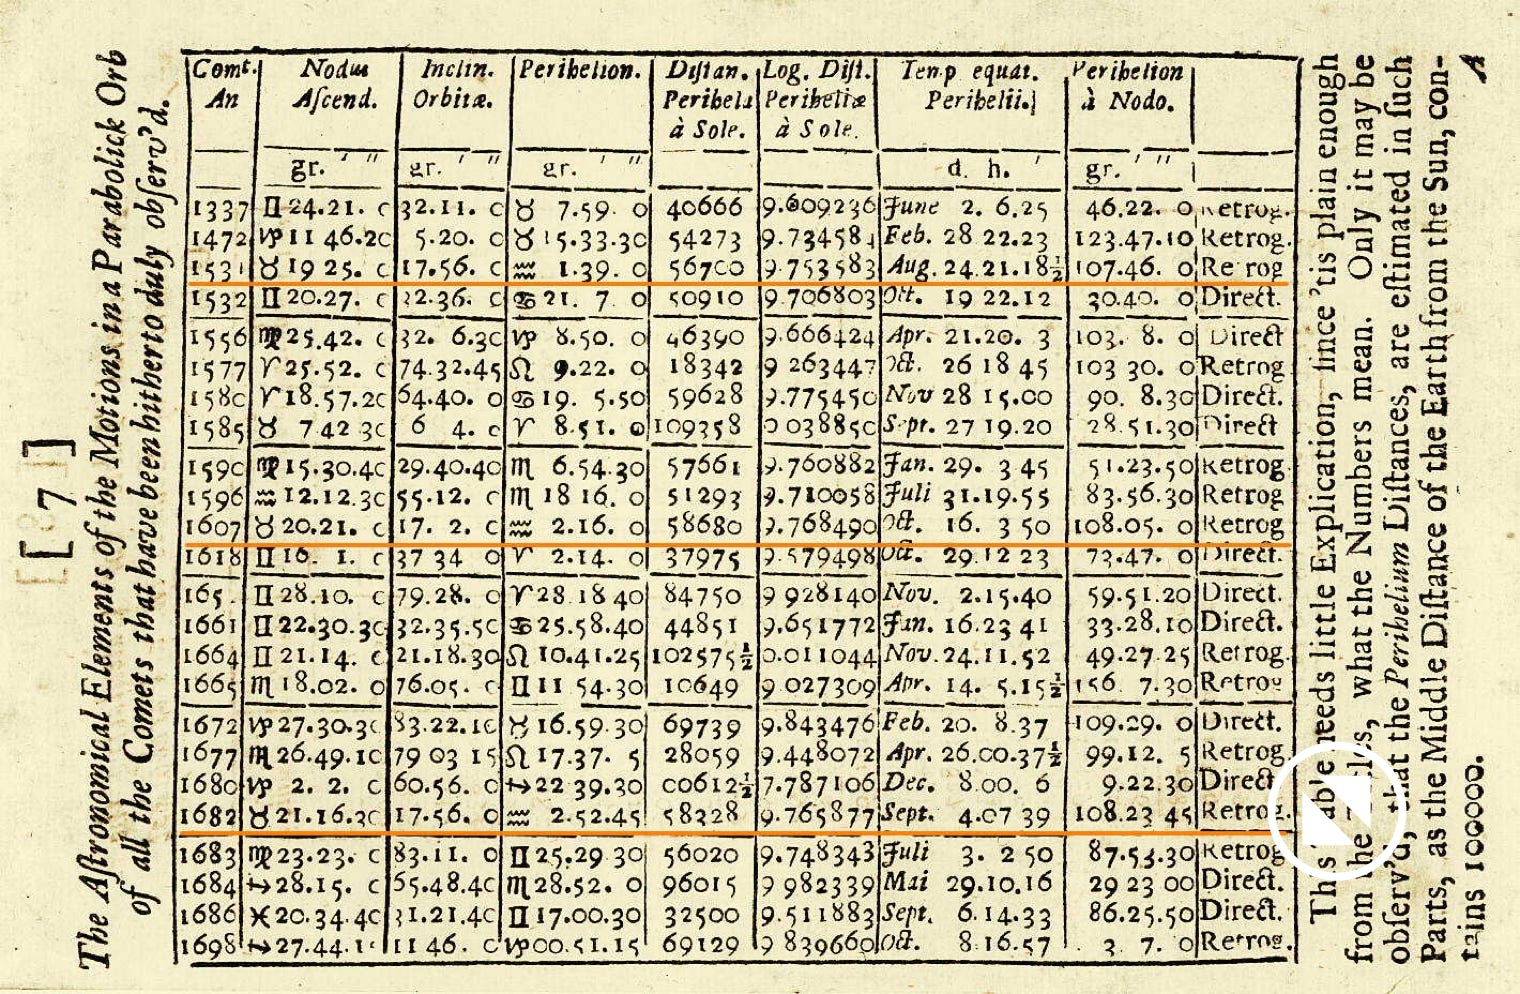 [ 7 ]
The Aſtronomical Elements of the Motions in a Parabolick Orb
of all the Comets that have been hitherto duly obſerv'd.
Comt. An | Nodus Aſcend. | Inclin. Orbitæ. | Perihelion. | Diſtan. Perihelia à Sole. | Log. Diſt. Periheliæ à Sole. | Temp equat. Perihelii. | Perihelion à Nodo.
gr. ' " | gr. ' " | gr. ' " | d. h. ' | gr. ' "
1337 ♊ 24.21. 0 32.11. 0 ♉ 7.59. 0 40666 9.609236 June 2. 6.25 46.22. 0 Retrog.
1472 ♑ 11 46.20 5.20. 0 ♉ 15.33.30 54273 9.734584 Feb. 28 22.23 123.47.10 Retrog.
1531 ♉ 19 25. 0 17.56. 0 ♒ 1.39. 0 56700 9.753583 Aug. 24.21.18½ 107.46. 0 Retrog
1532 ♊ 20.27. 0 32.36. 0 ♋ 21. 7. 0 50910 9.706803 Oct. 19 22.12 30.40. 0 Direct.
1556 ♍ 25.42. 0 32. 6.30 ♑ 8.50. 0 46390 9.666424 Apr. 21.20. 3 103. 8. 0 Direct
1577 ♈ 25.52. 0 74.32.45 ♌ 9.22. 0 18342 9 263447 Oct. 26 18 45 103 30. 0 Retrog
1580 ♈ 18.57.20 64.40. 0 ♋ 19. 5.50 59628 9.775450 Nov 28 15.00 90. 8.30 Direct.
1585 ♉ 7 42 30 6 4. 0 ♈ 8.51. 0 109358 0 038850 Sept. 27 19.20 28.51.30 Direct
1590 ♍ 15.30.40 29.40.40 ♏ 6.54.30 57661 9.760882 Jan. 29. 3 45 51.23.50 Retrog
1596 ♒ 12.12.30 55.12. 0 ♏ 18 16. 0 51293 9.710058 Juli 31.19.55 83.56.30 Retrog
1607 ♉ 20.21. 0 17. 2. 0 ♒ 2.16. 0 58680 9.768490 Oct. 16. 3 50 108.05. 0 Retrog
1618 ♊ 16. 1. 0 37 34 0 ♈ 2.14. 0 37975 9.579498 Oct. 29.12 23 73.47. 0 Direct.
165 ♊ 28.10. 0 79.28. 0 ♈ 28 18 40 84750 9 928140 Nov. 2.15.40 59.51.20 Direct.
1661 ♊ 22.30.30 32.35.50 ♋ 25.58.40 44851 9.651772 Jan. 16.23 41 33.28.10 Direct.
1664 ♊ 21.14. 0 21.18.30 ♌ 10.41.25 102575½ 0.011044 Nov. 24.11.52 49.27.25 Retrog.
1665 ♏ 18.02. 0 76.05. 0 ♊ 11 54.30 10649 9 027309 Apr. 14. 5.15½ 156. 7.30 Retrog
1672 ♑ 27.30.30 83.22.10 ♉ 16.59.30 69739 9.843476 Feb. 20. 8.37 109.29. 0 Direct.
1677 ♏ 26.49.10 79 03 15 ♌ 17.37. 5 28059 9.448072 Apr. 26.00.37½ 99.12. 5 Retrog.
1680 ♑ 2. 2. 0 60.56. 0 ♐ 22 39.30 00612½ 7.787106 Dec. 8.00. 6 9.22.30 Direct
1682 ♉ 21.16.30 17.56. 0 ♒ 2.52.45 58328 9.765877 Sept. 4.07 39 108.23 45 Retrog.
1683 ♍ 23.23. 0 83.11. 0 ♊ 25.29 30 56020 9.748343 Juli 3. 2 50 87.53.30 Retrog
1684 ♐ 28.15. 0 65.48.40 ♏ 28.52. 0 96015 9 982339 Mai 29.10.16 29 23 00 Direct.
1686 ♓ 20.34.40 31.21.40 ♊ 17.00.30 32500 9.511883 Sept. 6.14.33 86.25.50 Direct.
1698 ♐ 27.44.1 11 46. 0 ♑ 00.51.15 69129 9 839660 Oct. 8.16.57 3. 7. 0 Retrog.
This Table needs little Explication, ſince 'tis plain enough
from the Titles, what the Numbers mean. Only it may be
obſerv'd, that the Perihelium Diſtances, are eſtimated in ſuch
Parts, as the Middle Diſtance of the Earth from the Sun, con-
tains 100000.
A